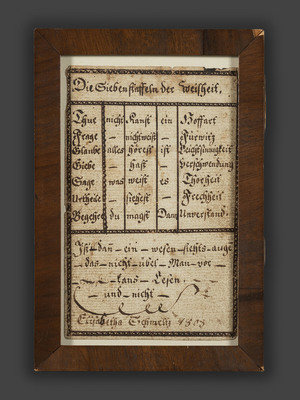 Die Siebenstaffeln der Weisheit,
Thue nicht kanst ein Hoffart
Frage – nichtweist – Fürwitz
Glaube alles hörest ist Leichtsinnigkeit
Giebe – hast – Verschwendung
Sage was weist es Thorheit
Urtheile – siehest – Frechheit
Begehre du magst Dann Unverstand
Ist – dan – ein – wesen – sichts – auge
das – nicht – übel – Man – vor
– Lesen –
– und – nicht –
Elisabetha 1808